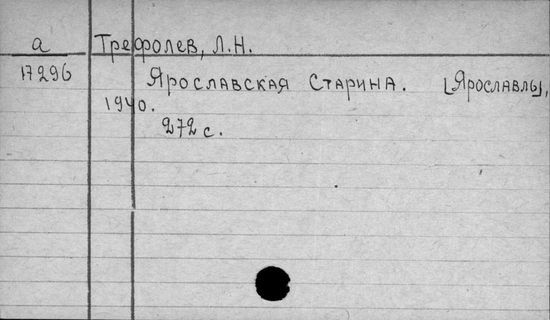 а Трефолев, Л.Н.
17296 Ярославская Старина. [Ярославль],
1940.
272 с.